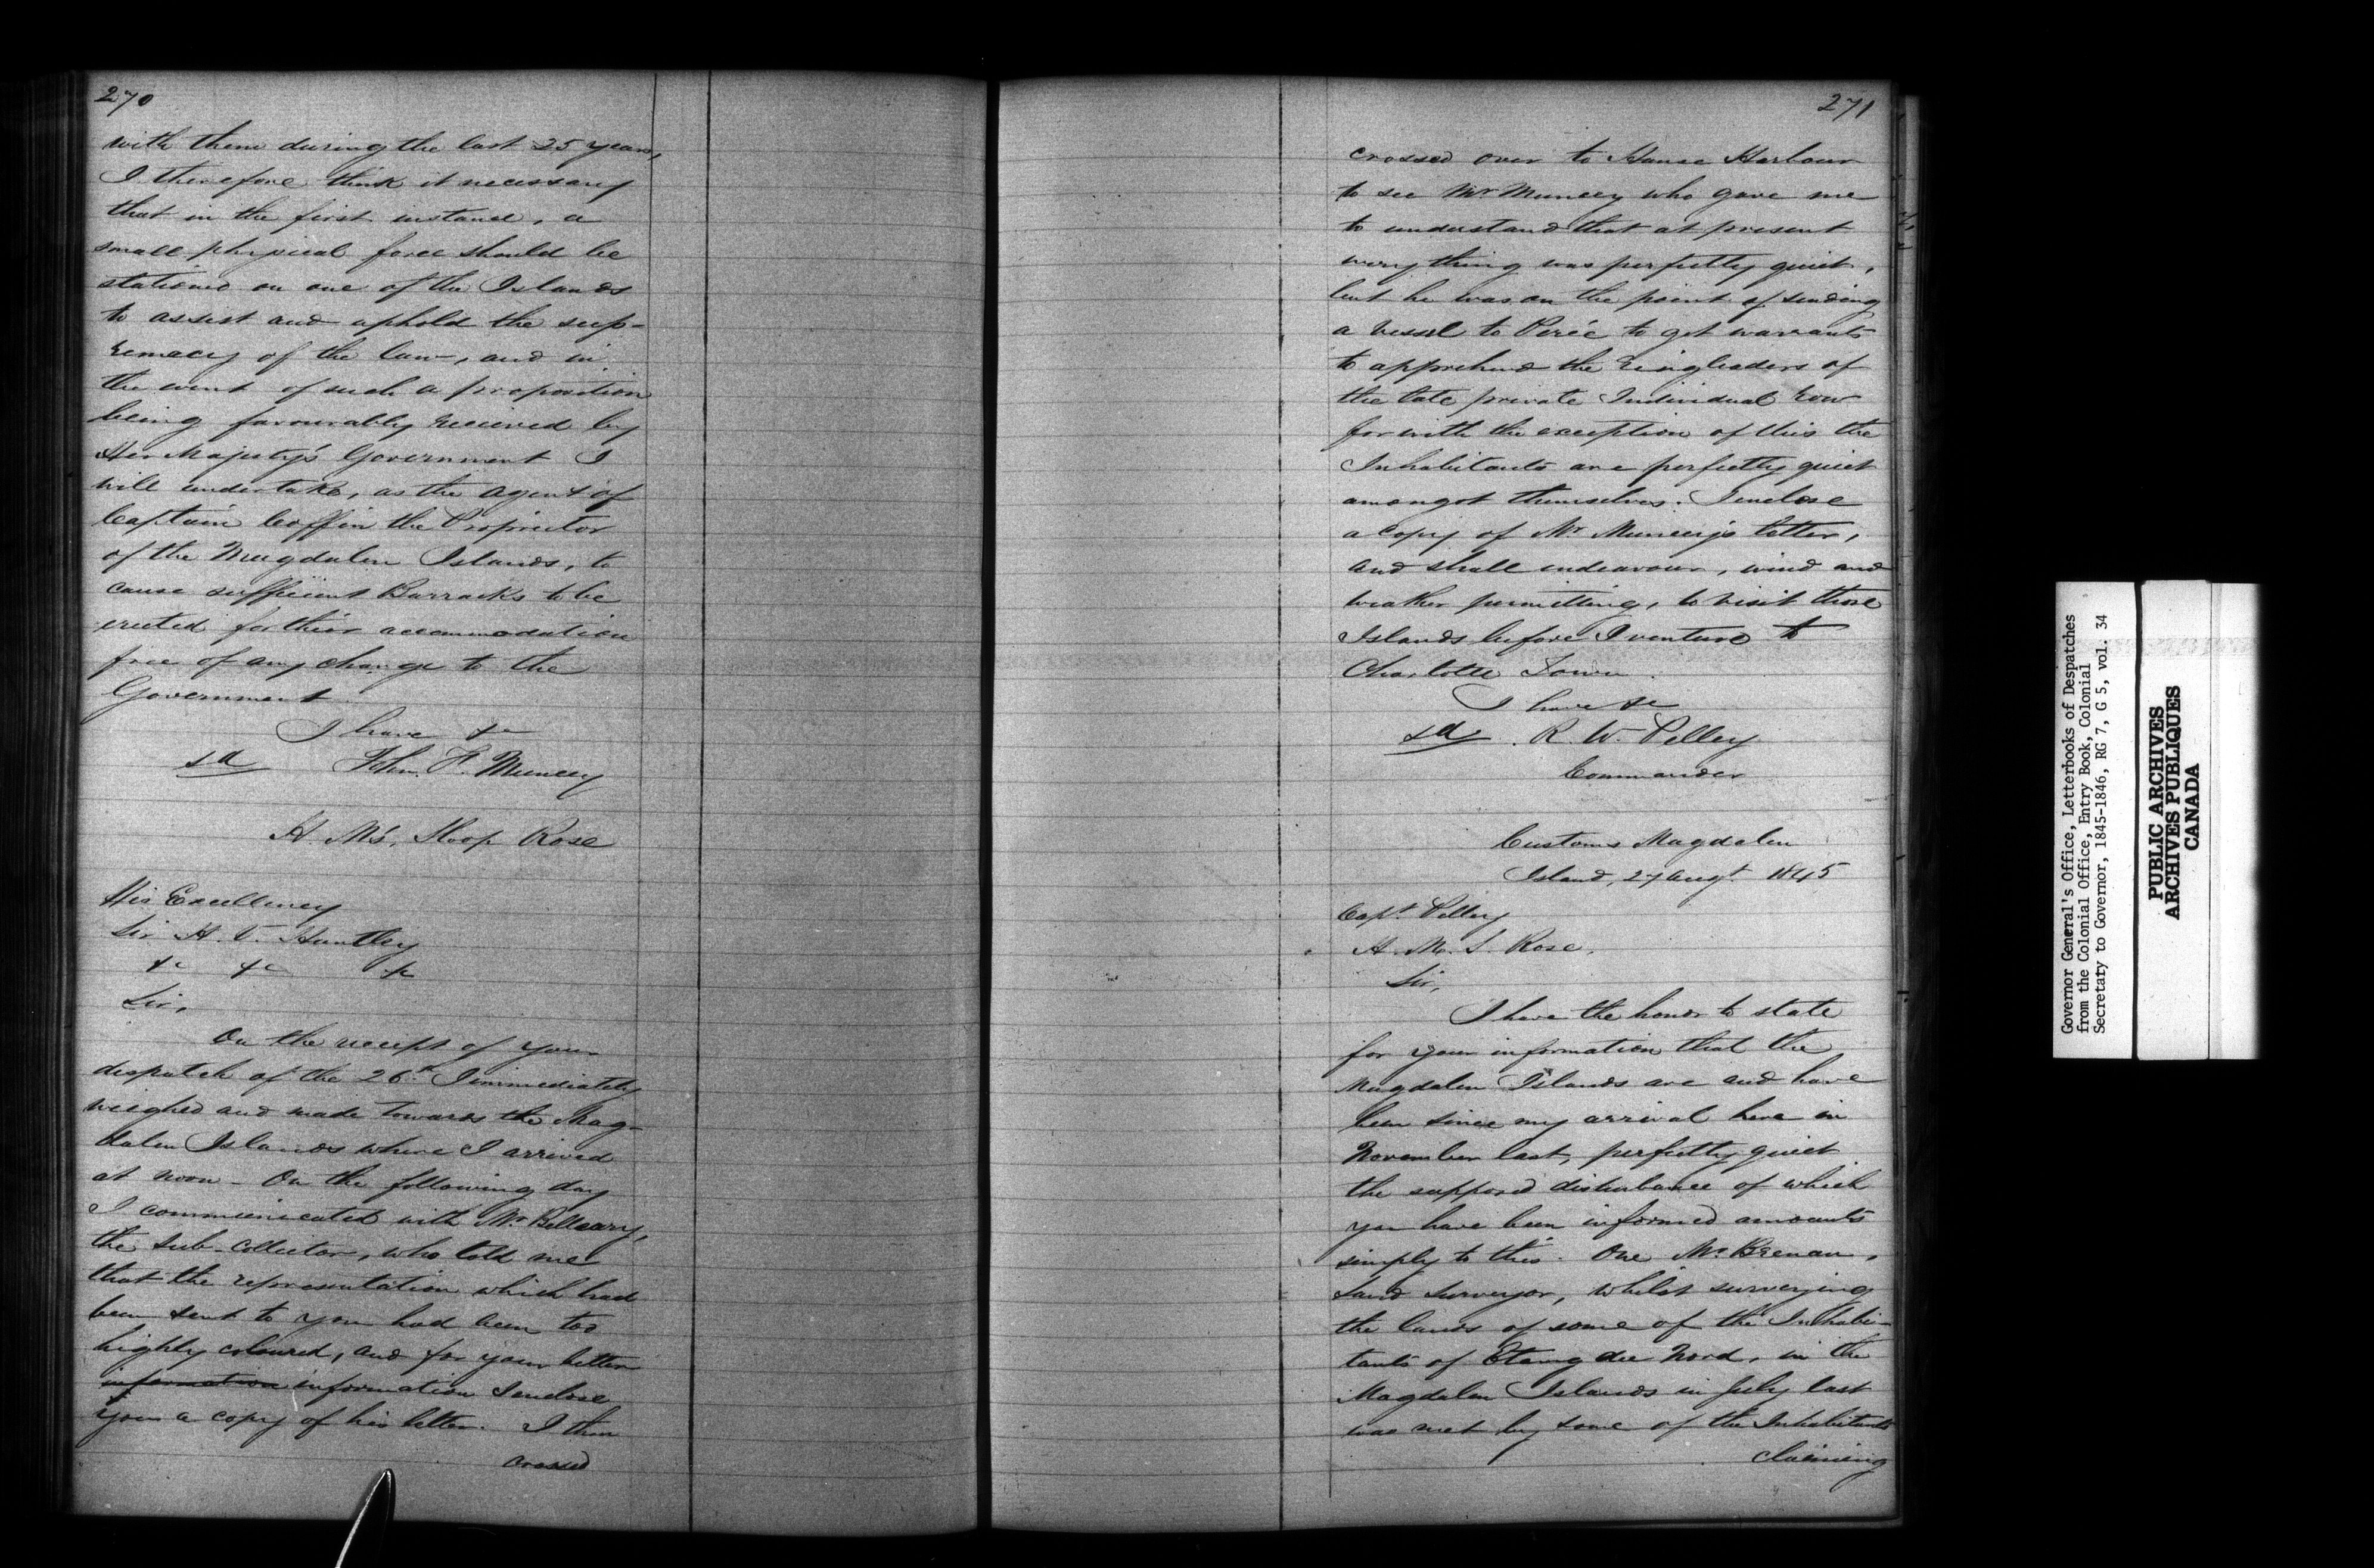 270
with them during the last 25 years,
I therefore think it necessary
that in the first instance, a
small physical force should be
stationed on one of the Islands
to assist and uphold the sup-
remacy of the law, and in
the event of such a proposition
being favourably received by
Her Majesty's Government I
will undertake, as the agent of
Captain Coffin the Proprietor
of the Magdalen Islands, to
cause sufficient Barracks to be
erected for their accommodation
free of any charge to the
Government.
I have &c
sd John F. Muncey
H. M's. Sloop Rose
His Excellency
Sir H. V. Huntley
&c &c &c
Sir,
On the receipt of your
despatch of the 26th I immediately
weighed and made towards the Mag-
dalen Islands where I arrived
at noon - On the following day
I communicated with Mr Belleavry,
the Sub-Collector, who told me
that the representation which had
been sent to you had been too
highly coloured, and for your better
information information I enclose
you a copy of his letter. I then
crossed
271
crossed over to House Harbour
to see Mr Muncey who gave me
to understand that at present
every thing was perfectly quiet,
but he was on the point of sending
a vessel to Percé to get warrants
to apprehend the Ringleaders of
the late private Individual Row
for with the exception of this the
Inhabitants are perfectly quiet
amongst themselves. I enclose
a copy of Mr Muncey's letter,
and shall endeavour, wind and
weather permitting, to visit those
Islands before I venture to
Charlotte Town.
I have &c
sd R. W. Pelley
Commander
Customs Magdalen
Island, 27 Augt. 1845
Capt. Pelley
H. M. S. Rose.
Sir,
I have the honor to state
for your information that the
Magdalen Islands are and have
been since my arrival here in
November last, perfectly quiet
the supposed disturbance of which
you have been informed amounts
simply to this. One Mr Brenan,
Land Surveyor, whilst surveying
the lands of some of the Inhabi-
tants of Etang du Nord, in the
Magdalen Islands in July last
was met by some of the Inhabitants
claiming
Governor General's Office, Letterbooks of Despatches
from the Colonial Office, Entry Book, Colonial
Secretary to Governor, 1845-1846, RG 7, G 5, vol. 34
PUBLIC ARCHIVES
ARCHIVES PUBLIQUES
CANADA